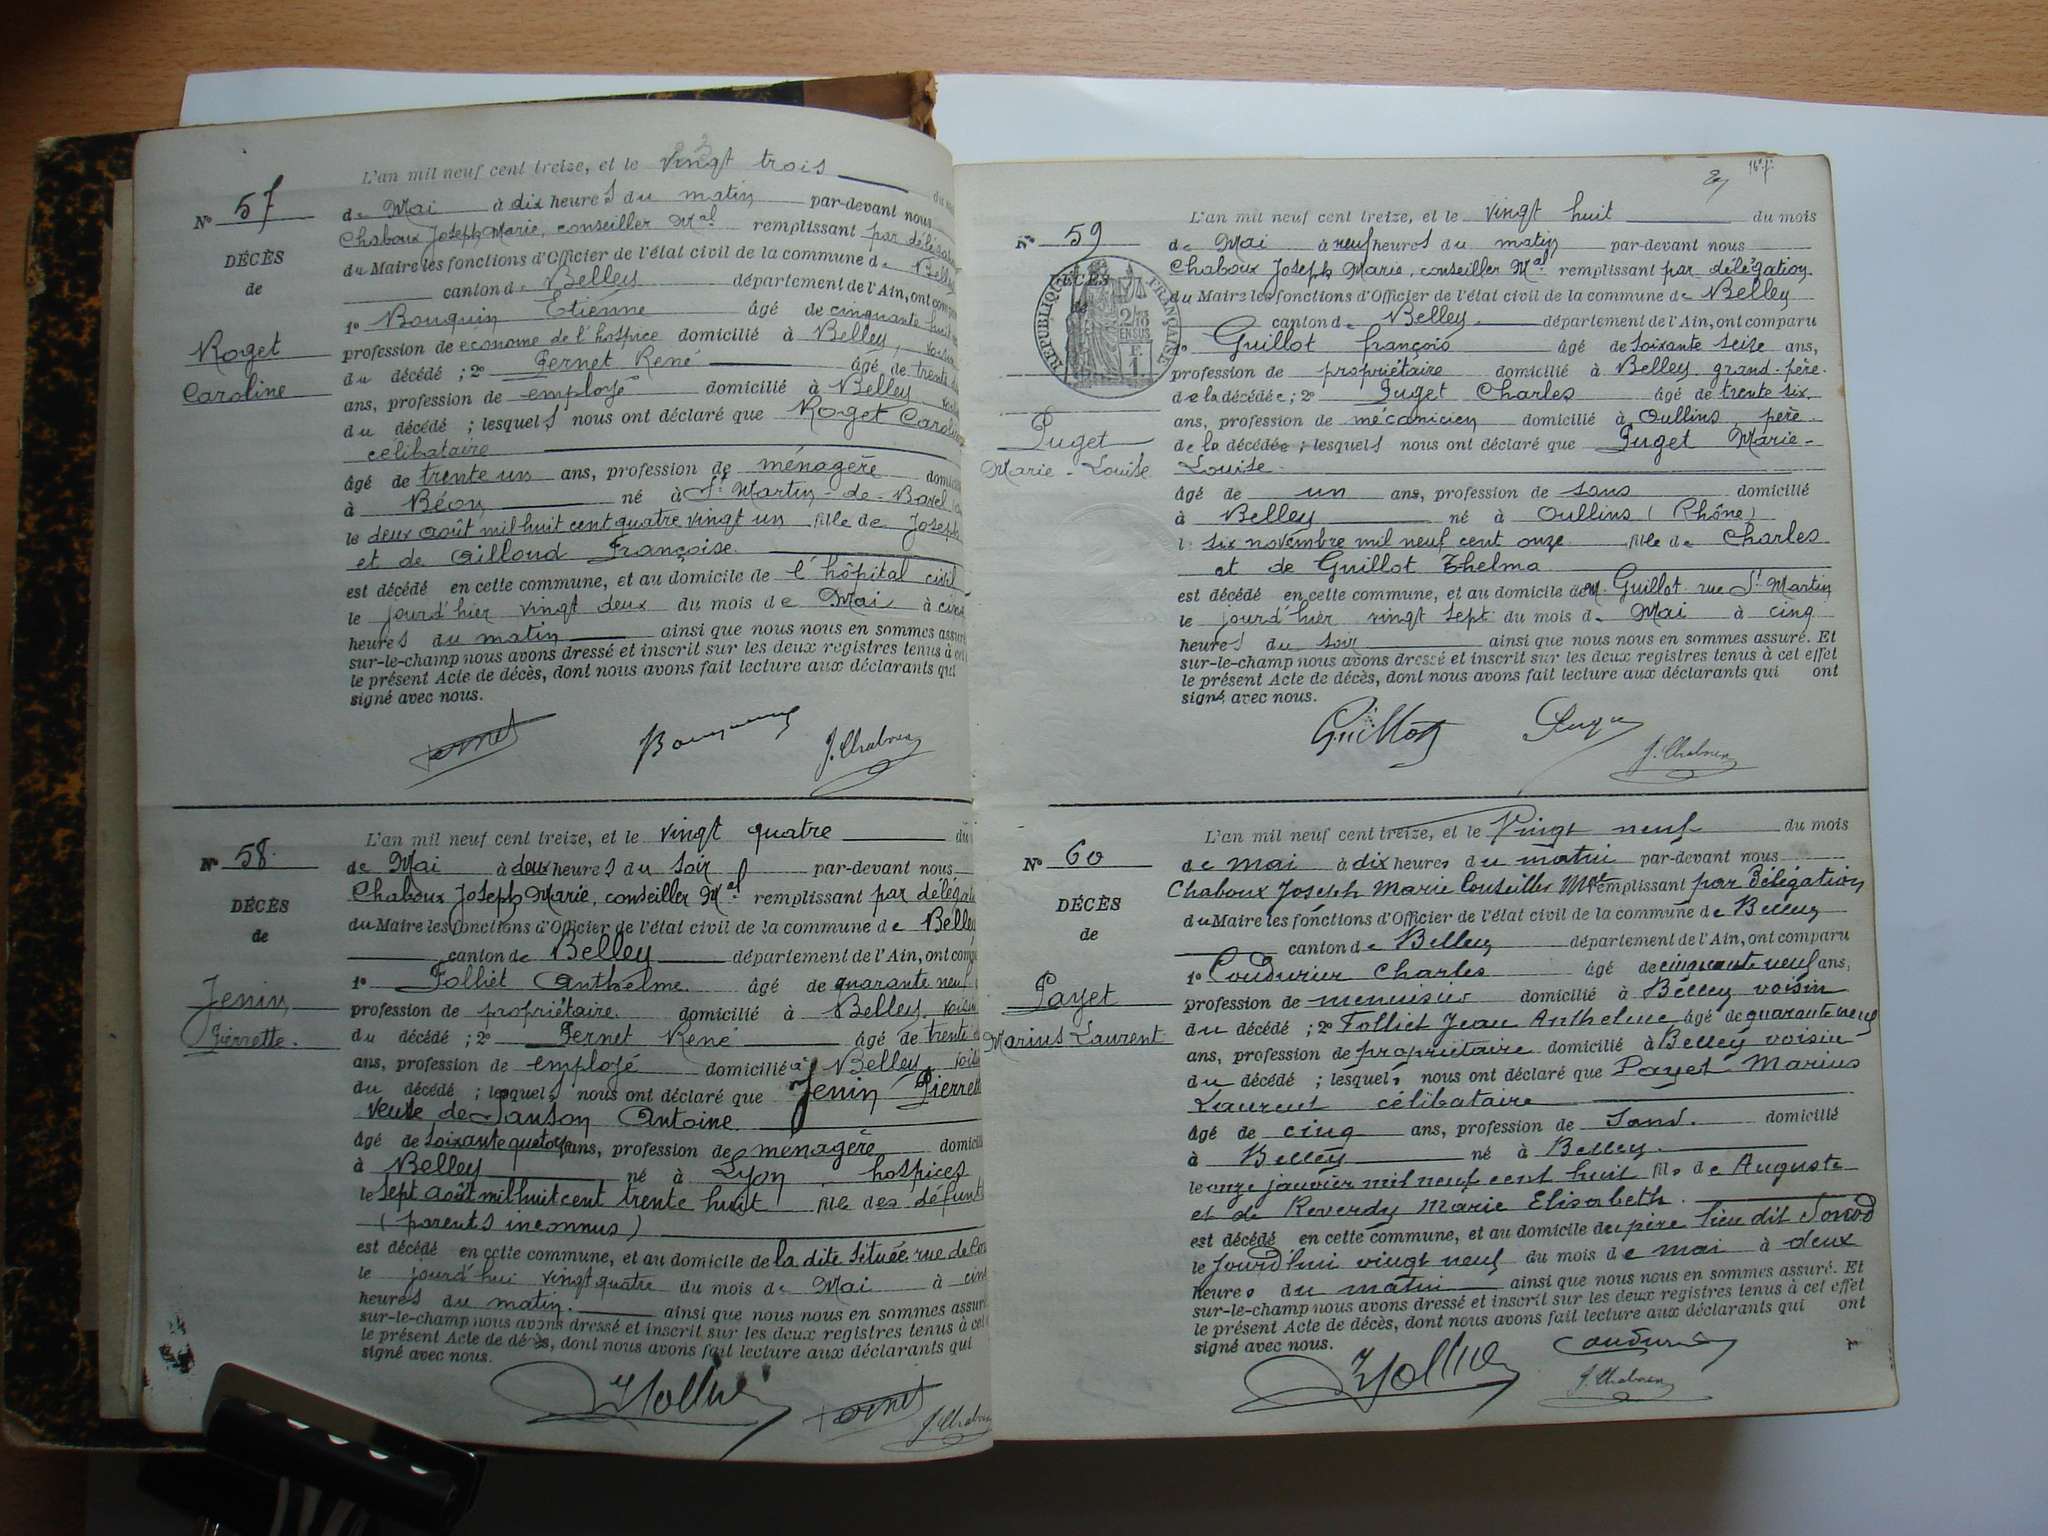 L'an mil neuf cent treize, et le vingt trois
N° 57
de Mai à dix heures du matin par-devant nous
Chaboux Joseph Marie, conseiller Mal remplissant par
DÉCÈS
du Maire les fonctions d'Officier de l'état civil de la commune de
de
canton de Belley département de l'Ain, ont
1° Bouquin Etienne âgé de cinquante huit
Roget
Caroline
profession de econome de l'hospice domicilié à Belley,
du décédé ; 2° Pernet René âgé de trente
ans, profession de employé domicilié à Belley
du décédé ; lesquels nous ont déclaré que Roget
célibataire
âgé de trente un ans, profession de ménagère
à Béon né à St Martin - de - Bavel
le deux août mil huit cent quatre vingt un fille de Joseph
et de Françoise
est décédé en cette commune, et au domicile de l'hôpital civil
le jourd'hier vingt deux du mois de Mai à
heures du matin ainsi que nous nous en sommes
sur-le-champ nous avons dressé et inscrit sur les deux registres tenus à
le présent Acte de décès, dont nous avons fait lecture aux déclarants qui
signé avec nous.
J. Chaboux
L'an mil neuf cent treize, et le vingt quatre du
N° 58
de Mai à deux heures du soir par-devant nous
Chaboux Joseph Marie, conseiller Mal remplissant par
DÉCÈS
du Maire les fonctions d'Officier de l'état civil de la commune de
de
canton de Belley département de l'Ain, ont
1° Folliet Anthelme âgé de quarante neuf
Jenin
Pierrette.
profession de propriétaire. domicilié à Belley
du décédé ; 2° Pernet René âgé de trente
ans, profession de employé domicilié à Belley
du décédé ; lesquels nous ont déclaré que Jenin
veuve de Antoine
âgé de soixante quatorze ans, profession de ménagère
à Belley né à Lyon hospices
le sept août mil huit cent trente huit fille des
(parents inconnus)
est décédé en cette commune, et au domicile de la dite située rue de
le jourd'hui vingt quatre du mois de Mai à
heures du matin. ainsi que nous nous en sommes
sur-le-champ nous avons dressé et inscrit sur les deux registres tenus à
le présent Acte de décès, dont nous avons fait lecture aux déclarants qui
signé avec nous.
J. Chaboux
L'an mil neuf cent treize, et le vingt huit du mois
N° 59
de Mai à neuf heures du matin par-devant nous
Chaboux Joseph Marie, conseiller Mal remplissant par délégation
DÉCÈS
RÉPUBLIQUE FRANÇAISE
du Maire les fonctions d'Officier de l'état civil de la commune de Belley
canton de Belley département de l'Ain, ont comparu
1° Guillot françois âgé de soixante seize ans,
profession de propriétaire domicilié à Belley grand-père
de la décédée ; 2° Puget Charles âgé de trente six
ans, profession de mécanicien domicilié à Oullins père
Puget
Marie-Louise
de la décédée ; lesquels nous ont déclaré que Puget Marie-
Louise
âgé de un ans, profession de sans domicilié
à Belley né à Oullins (Rhône)
le six novembre mil neuf cent onze fille de Charles
et de Guillot Thelma
est décédé en cette commune, et au domicile de M. Guillot rue St Martin
le jourd'hier vingt sept du mois de Mai à cinq
heures du soir ainsi que nous nous en sommes assuré. Et
sur-le-champ nous avons dressé et inscrit sur les deux registres tenus à cet effet
le présent Acte de décès, dont nous avons fait lecture aux déclarants qui ont
signé avec nous.
Guillot
J. Chaboux
L'an mil neuf cent treize, et le Vingt neuf du mois
N° 60
de mai à dix heures du matin par-devant nous
Chaboux Joseph Marie Conseiller Mal remplissant par Délégation
DÉCÈS
du Maire les fonctions d'Officier de l'état civil de la commune de Belley
de
canton de Belley département de l'Ain, ont comparu
1° Coudurier Charles âgé de cinquante neuf ans,
Payet
Marius Laurent
profession de menuisier domicilié à Belley voisin
du décédé ; 2° Folliet Jean Anthelme âgé de quarante neuf
ans, profession de propriétaire domicilié à Belley voisin
du décédé ; lesquels nous ont déclaré que Payet Marius
Laurent célibataire
âgé de cinq ans, profession de sans. domicilié
à Belley né à Belley.
le onze janvier mil neuf cent huit fils de Auguste
et de Reverdy Marie Elisabeth.
est décédé en cette commune, et au domicile du père lieu dit
le jourd'hui vingt neuf du mois de mai à deux
heures du matin ainsi que nous nous en sommes assuré. Et
sur-le-champ nous avons dressé et inscrit sur les deux registres tenus à cet effet
le présent Acte de décès, dont nous avons fait lecture aux déclarants qui ont
signé avec nous.
J. Chaboux